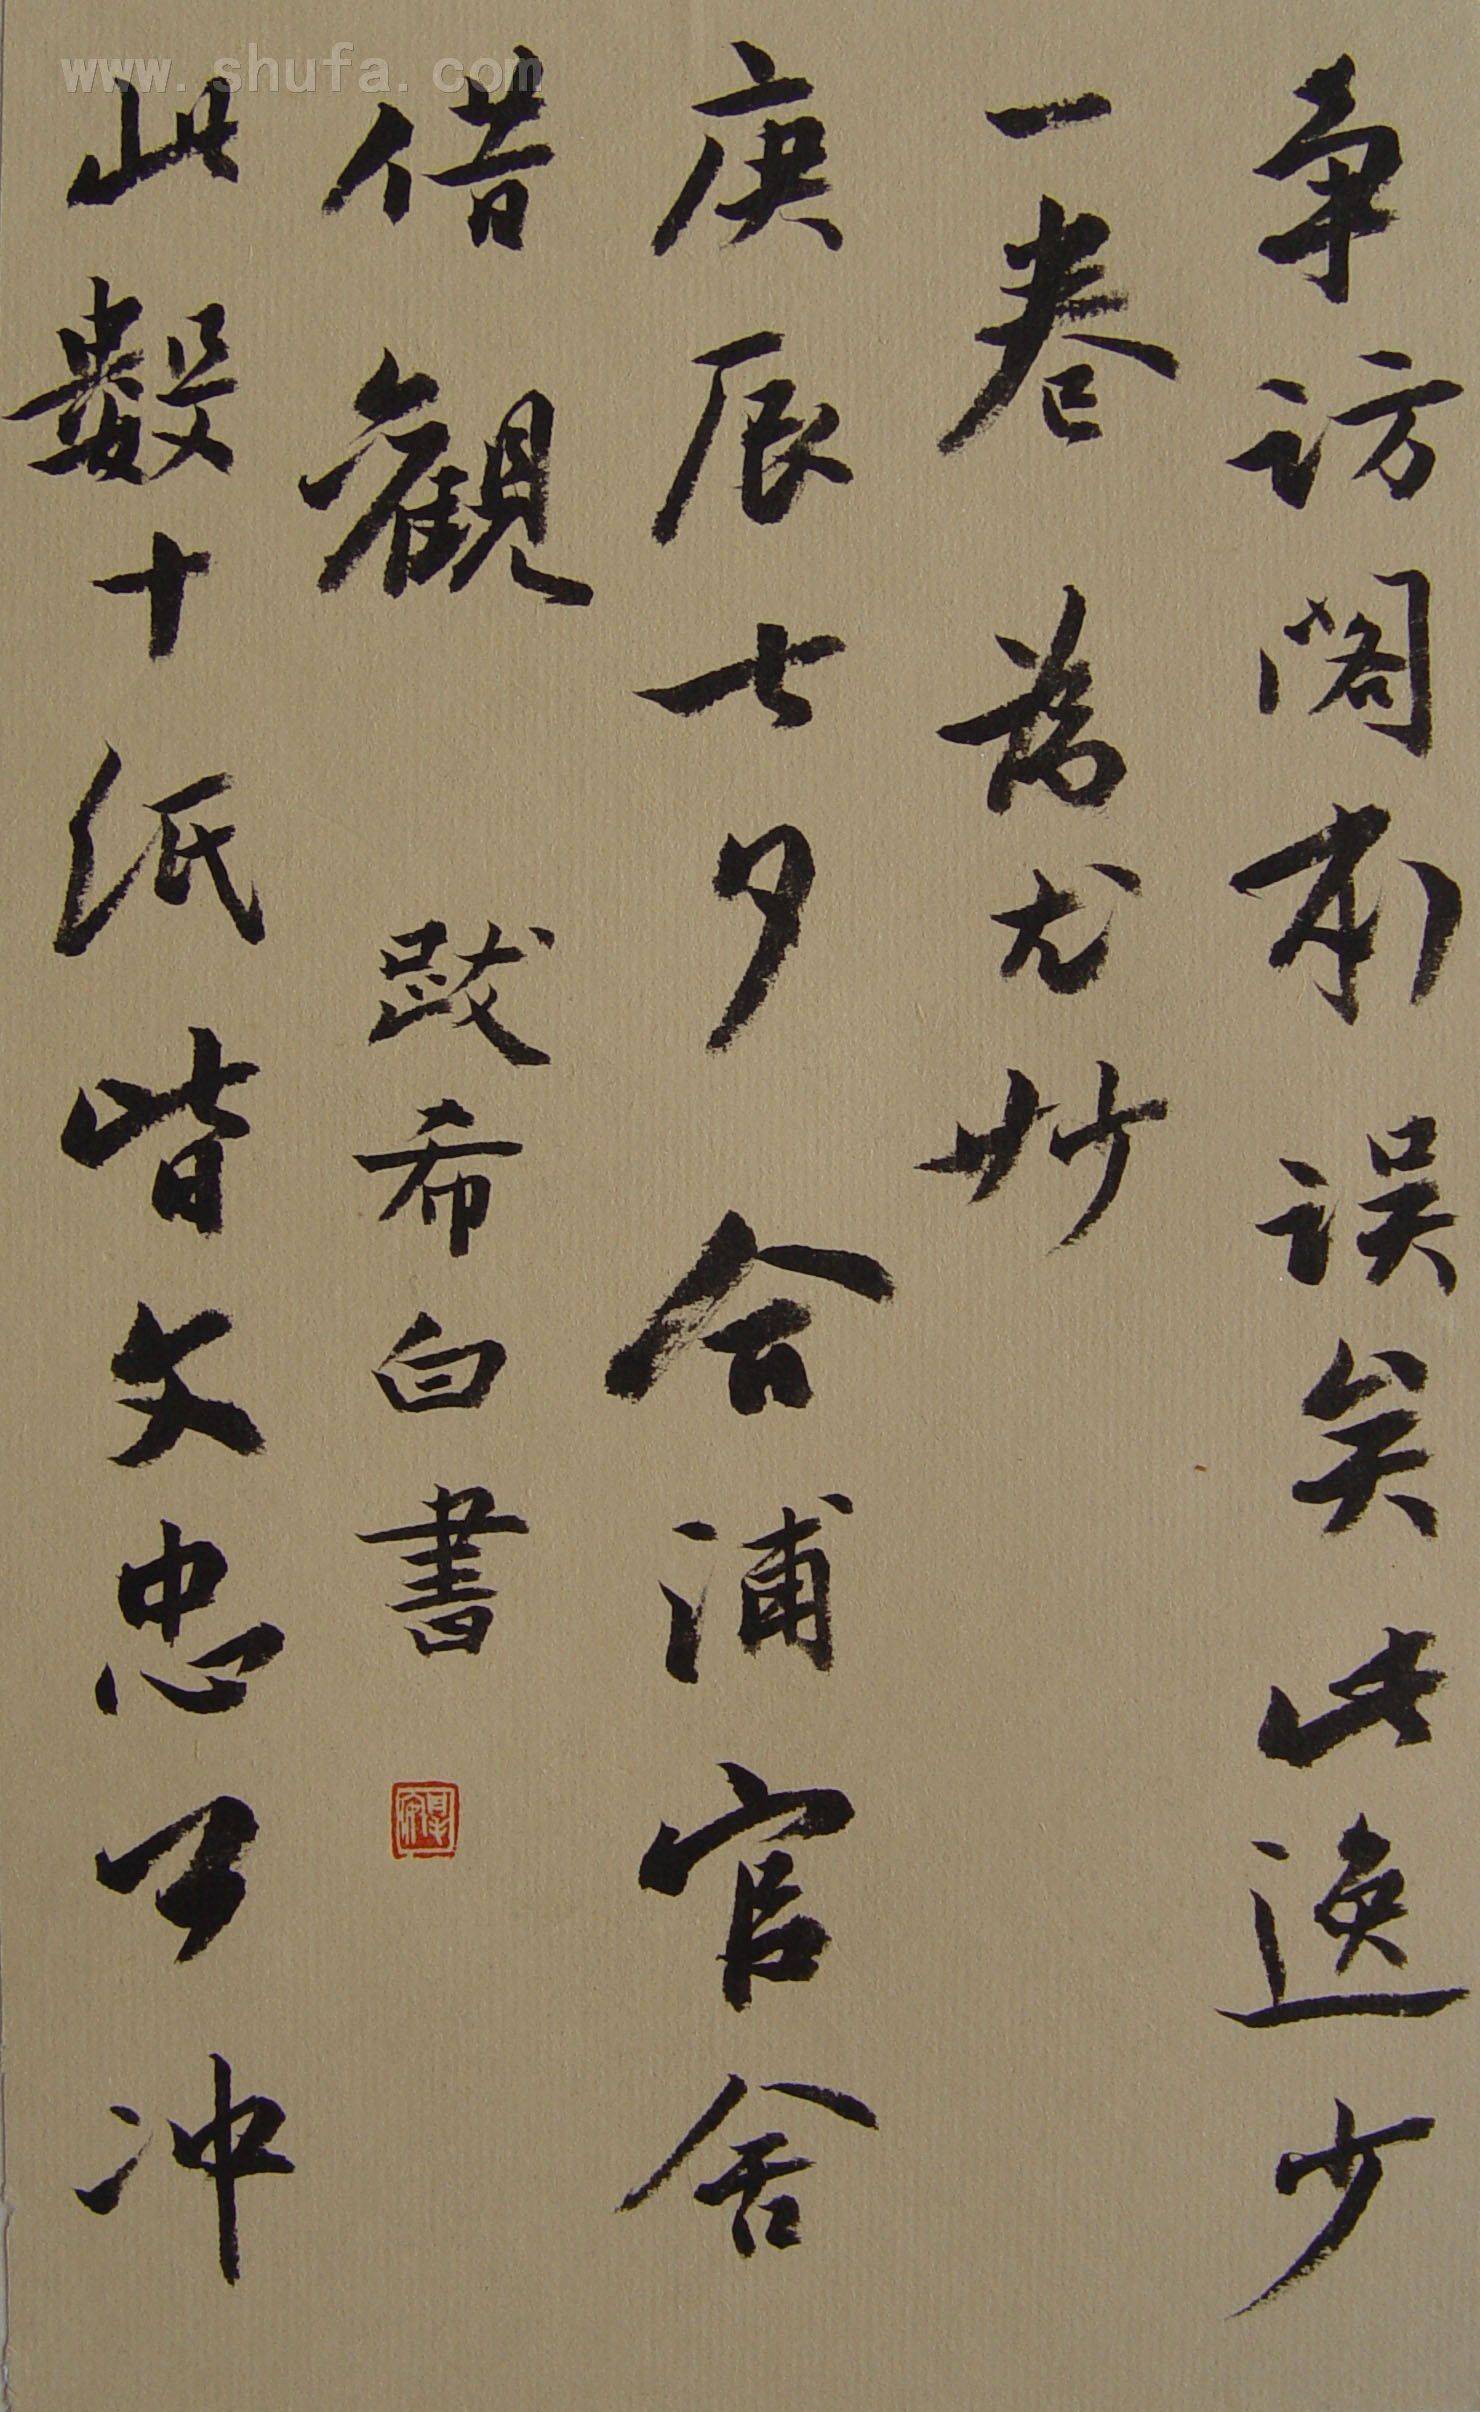 www.shufa.com
争访阁本误矣此逸少
一卷为尤妙
庚辰七夕合浦官舍
借觀 跋希白書
此數十紙皆文忠公冲